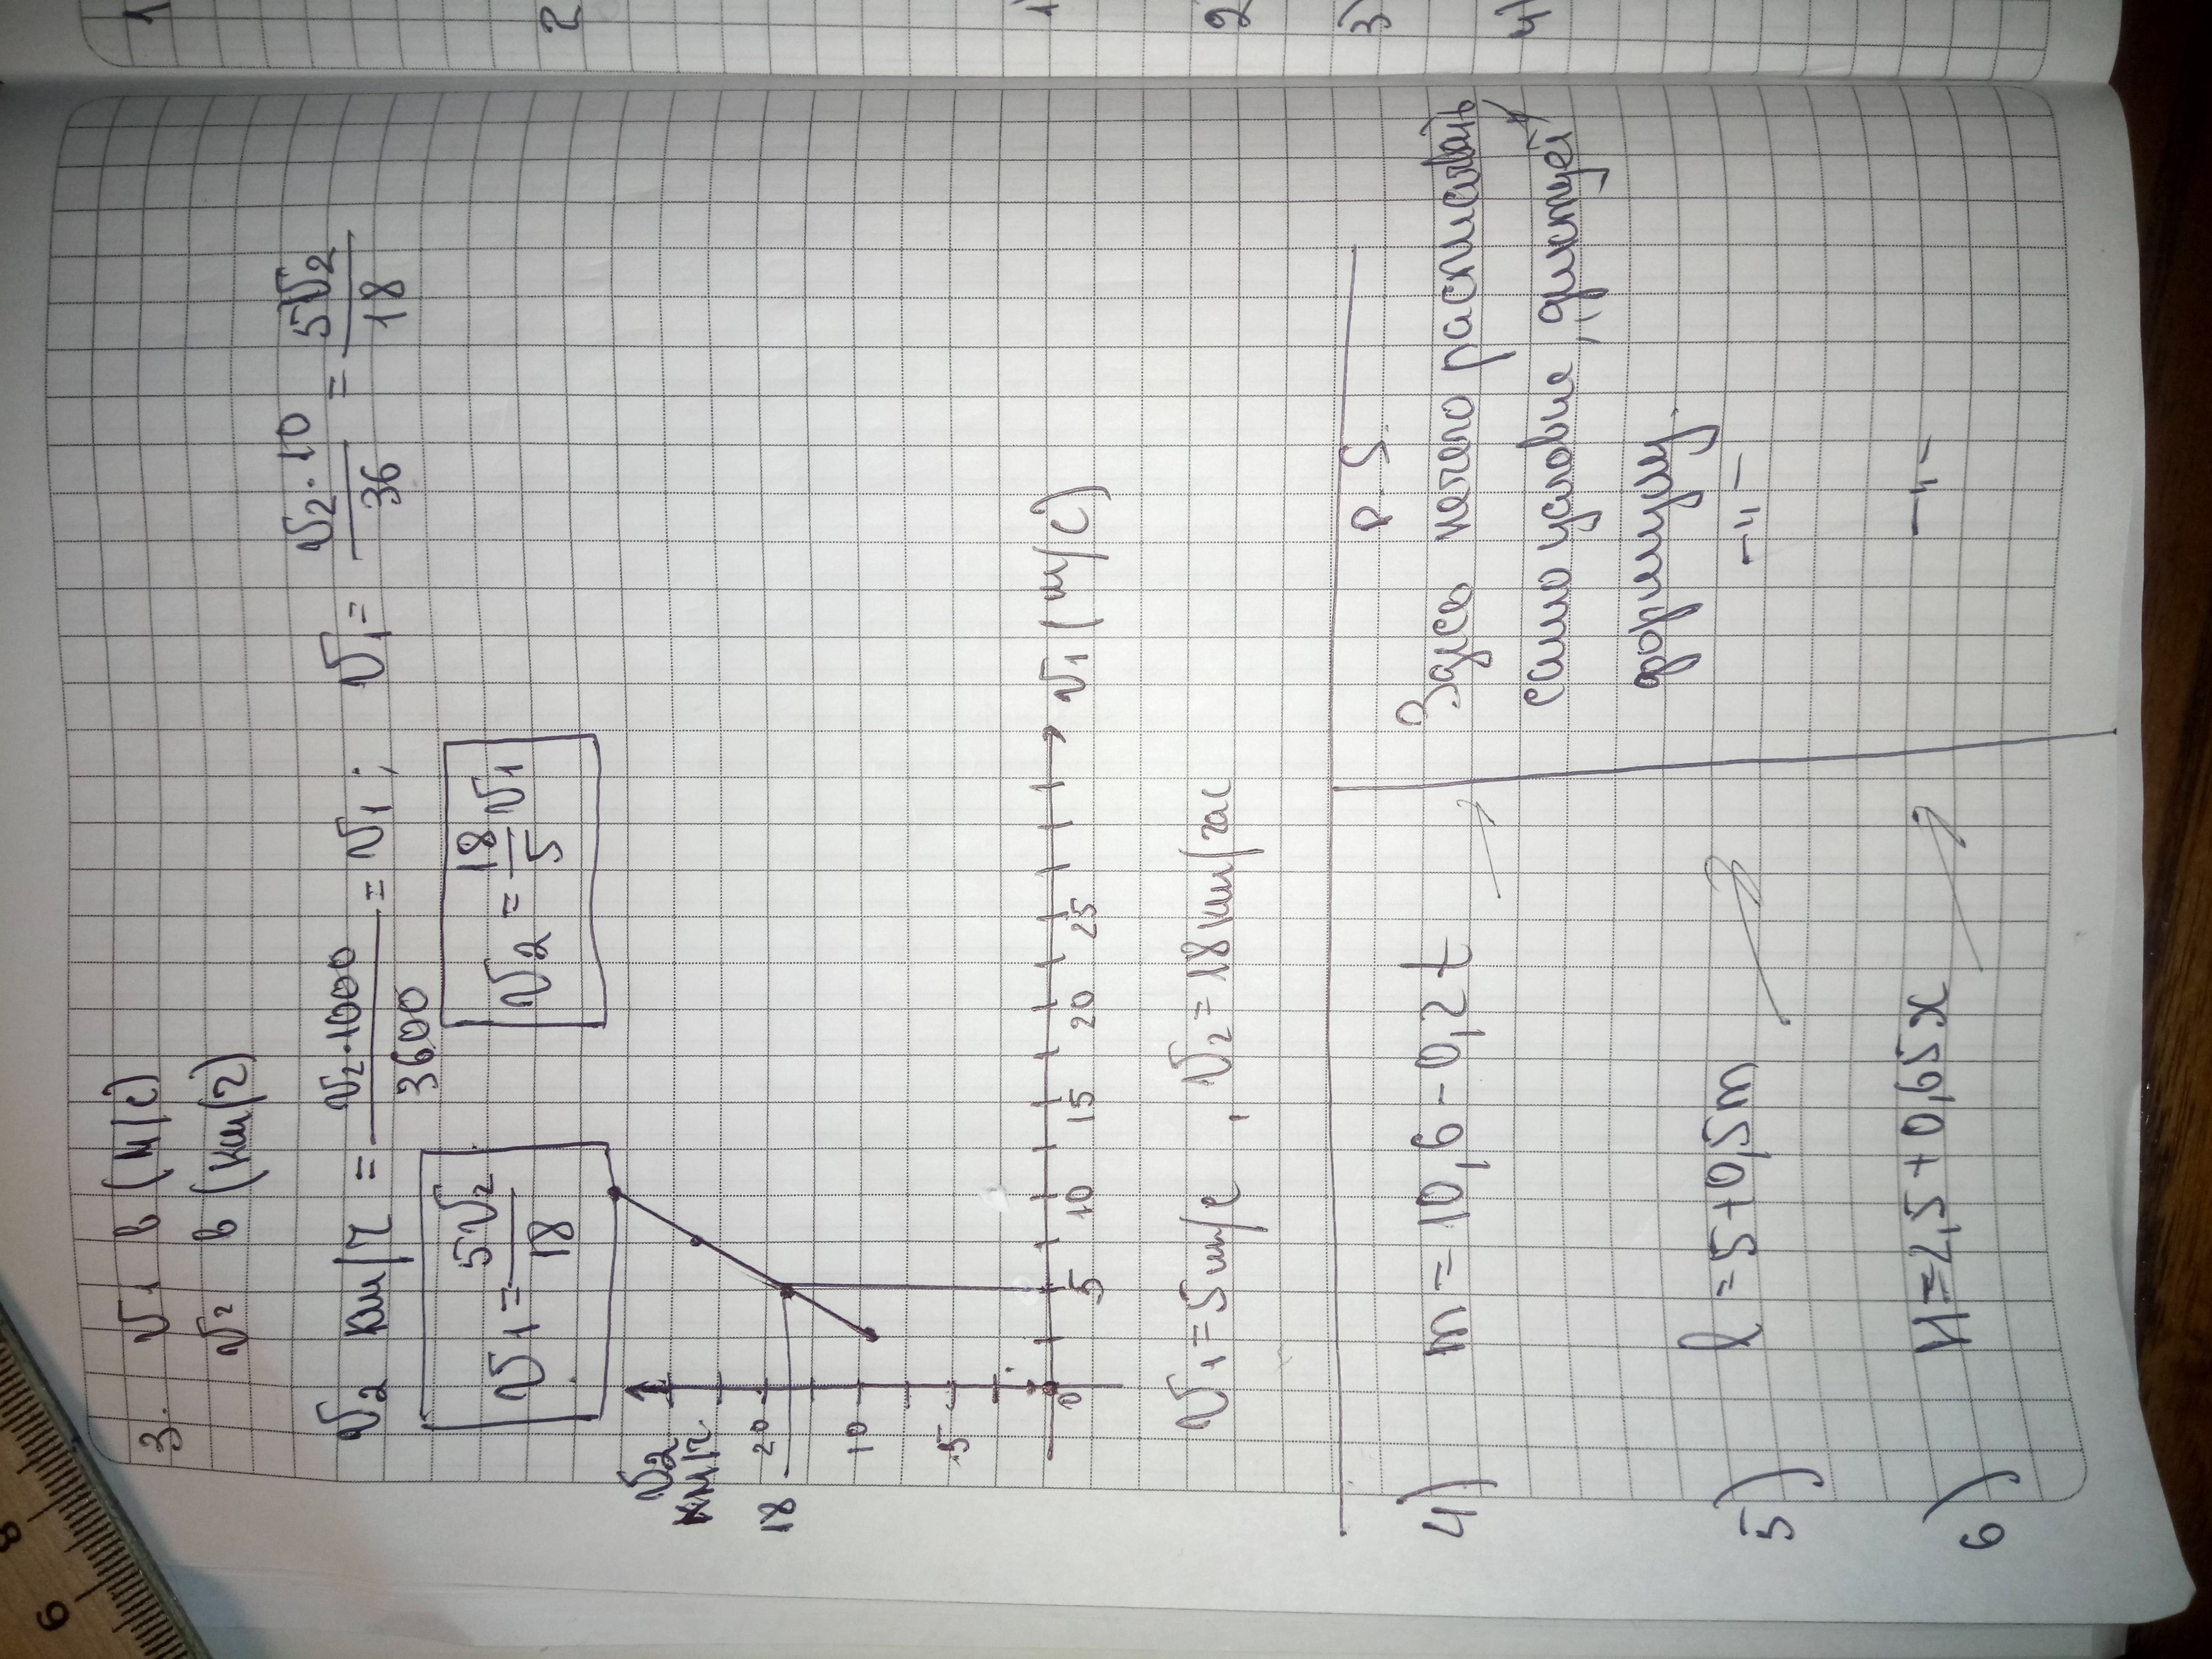 3. v₁ в (м/с)
v₂ в (км/ч)
v₂ км/ч = v₂·1000/3600 = v₁; v₁ = v₂·10/36 = 5v₂/18
v₁ = 5v₂/18
v₂ = 18/5 v₁
v₂
км/ч
18
20
10
5
0
5 10 15 20 25
v₁ (м/с)
v₁ = 5 м/с, v₂ = 18 км/час
P.S.
4) m = 10,6 - 0,2t
Здесь нечего расписывать
само условие диктует
формулу
5) l = 5 + 0,5m
-"-
6) H = 2,5 + 0,65x
-"-
1
2
1)
2
3)
4)
8
9